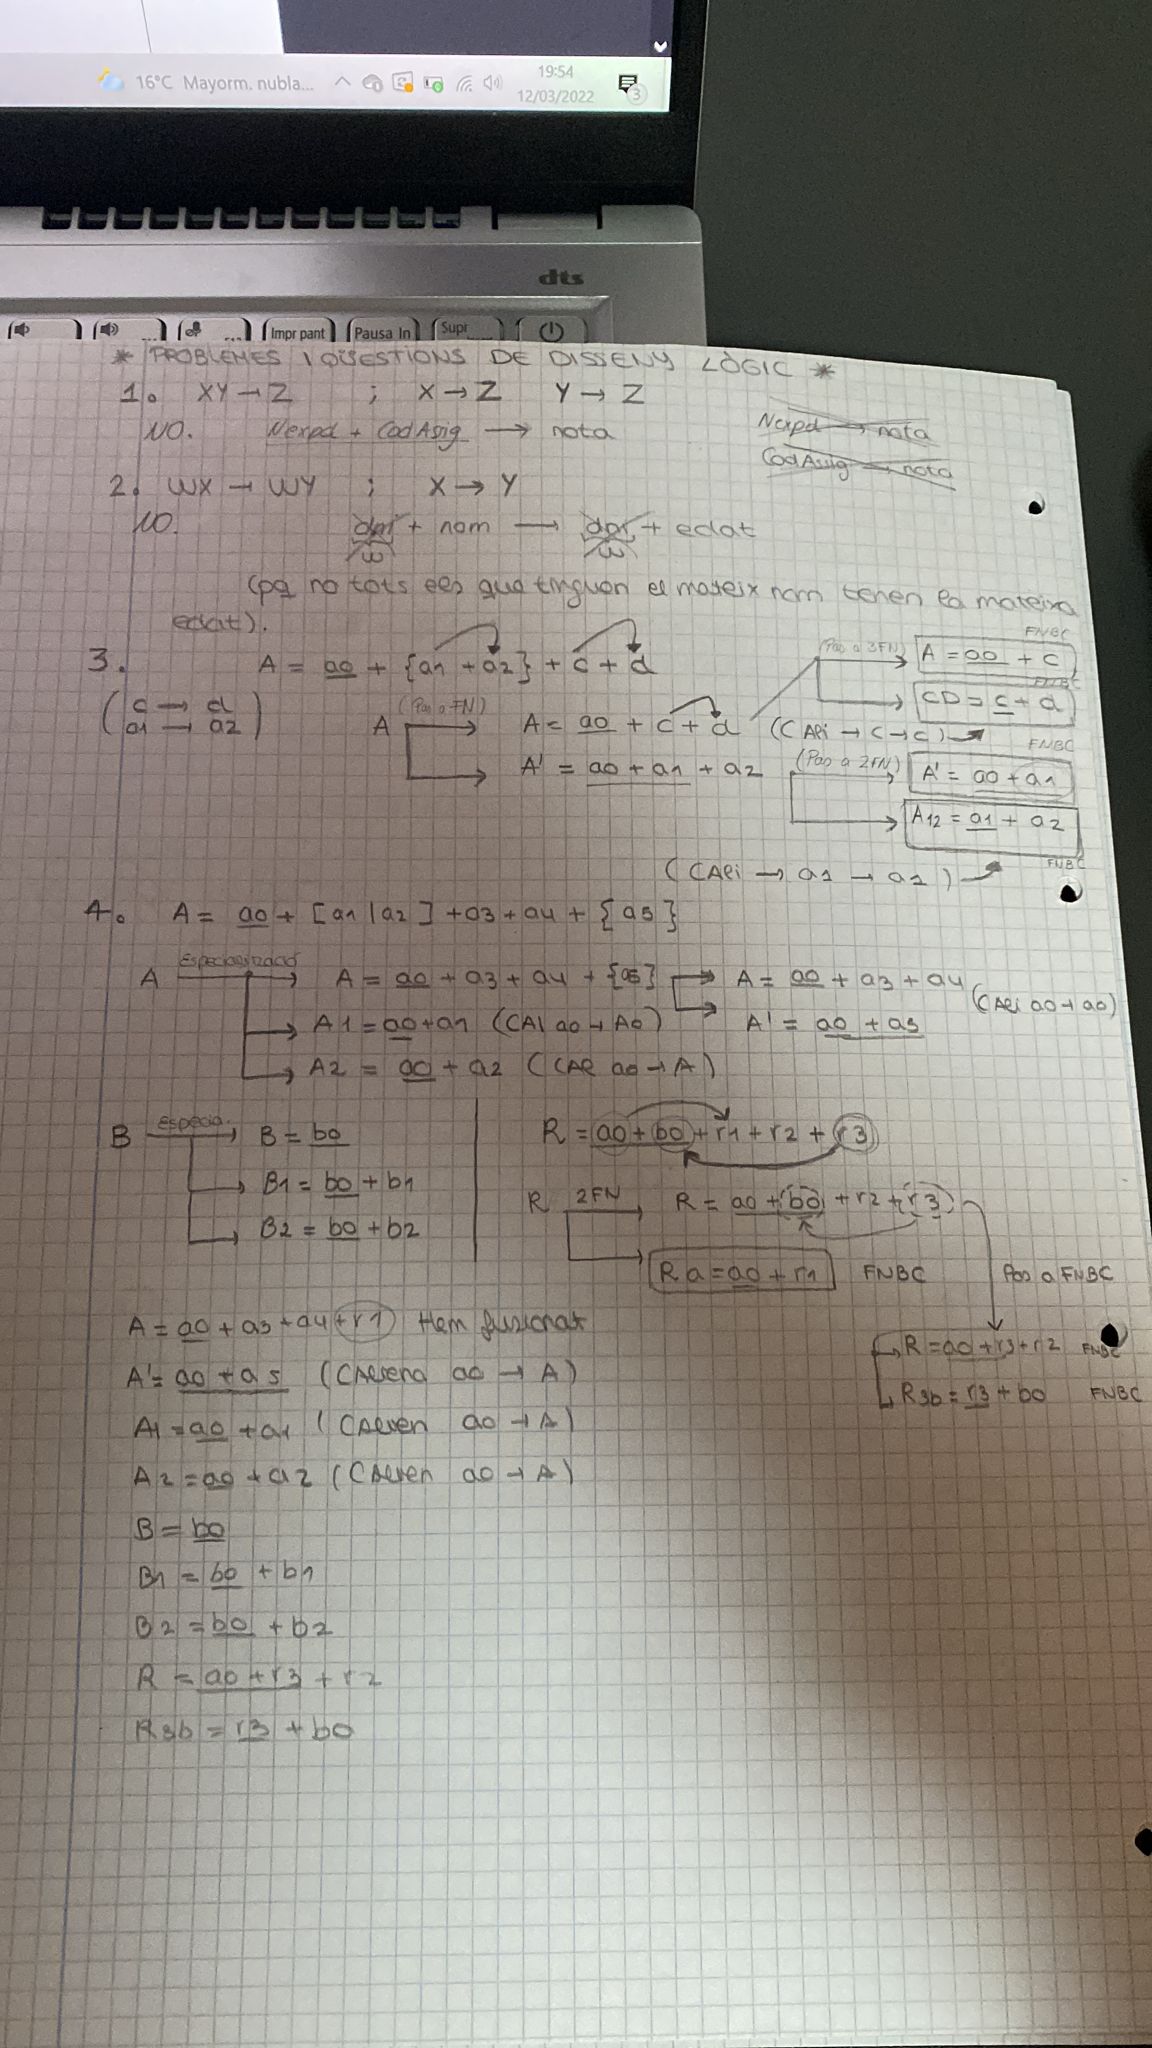 16°C Mayorm. nubla...
19:54
12/03/2022
3
dts
Impr pant
Pausa In
Supr
* PROBLEMES I QÜESTIONS DE DISSENY LÒGIC *
1. XY → Z ; X → Z Y → Z
NO. Nexpd + CodAsig → nota
Nexpd → nota
CodAsig → nota
2. WX → WY ; X → Y
NO. dni + nom → dni + edat
W W
(pq no tots els que tinguen el mateix nom tenen la mateixa
edat).
3. A = a0 + {a1 + a2} + c + d
(c → d
a1 → a2)
A (Pas a FN) A = a0 + c + d
A' = a0 + a1 + a2
(Pas a 3FN) A = a0 + c FNBC
CD = c + d FNBC
(CAli → c → c)
(Pas a 2FN) A' = a0 + a1 FNBC
A12 = a1 + a2
FNBC
(CAli → a1 → a1)
4. A = a0 + [a1 | a2] + a3 + a4 + {a5}
A Especialització A = a0 + a3 + a4 + {a5} A = a0 + a3 + a4
(CAli a0 → a0)
A1 = a0 + a1 (CAl a0 → A0) A' = a0 + a5
A2 = a0 + a2 (CAl a0 → A)
B Especia. B = b0
B1 = b0 + b1
B2 = b0 + b2
R = a0 + b0 + r1 + r2 + r3
R 2FN R = a0 + b0 + r2 + r3
Ra = a0 + r1 FNBC
Pas a FNBC
R = a0 + r3 + r2 FNBC
R3b = r3 + b0 FNBC
A = a0 + a3 + a4 + r1 Hem fusionat
A' = a0 + a5 (CAliena a0 → A)
A1 = a0 + a1 (CAlien a0 → A)
A2 = a0 + a2 (CAlien a0 → A)
B = b0
B1 = b0 + b1
B2 = b0 + b2
R = a0 + r3 + r2
R3b = r3 + b0